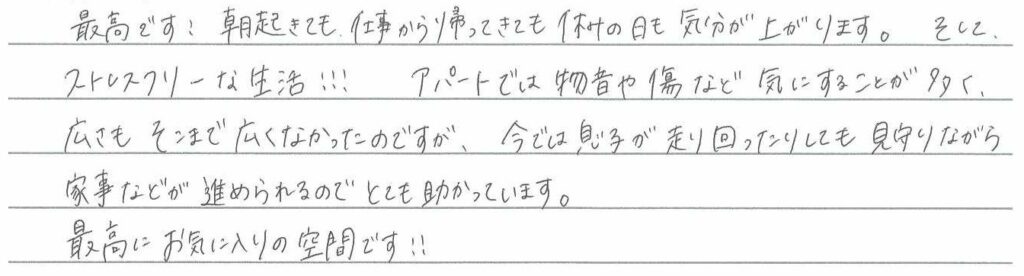 最高です! 朝起きても、仕事から帰ってきても 休みの日も 気分が上がります。 そして、
ストレスフリーな生活!!! アパートでは物音や傷など気にすることが多く、
広さも そこまで広くなかったのですが、 今では息子が走り回ったりしても見守りながら
家事などが進められるのでとても助かっています。
最高にお気に入りの空間です!!